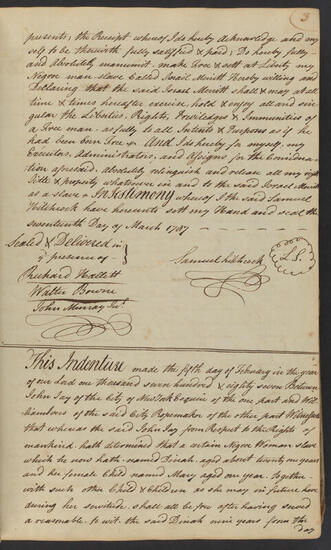 3
presents; the Receipt whereof I do hereby Acknowledge and my
self to be therewith fully satisfied & paid; Do hereby fully
and Absolutely manumit, make Free & sett at Liberty my
Negroe man slave Called Israel Merritt Hereby willing and
Declaring that the said Israel Merritt shall & may at all
time & times hereafter exercise, hold & enjoy all and sin
gular the Liberties, Rights, Priviledges & Immunities of
a Free man, as fully to all Intents & Purposes as if he
had been born Free & And I do hereby for myself, my
Executors, Administrators, and Assigns for the Considera
tion aforesaid, absolutely relinquish and release all my right
Title & property whatsoever in and to the said Israel Merritt
as a slave. In Testimony whereof I the said Samuel
Hitchcock have hereunto sett my Hand and seal the
seventeenth Day of March 1787
Sealed & Delivered in
ye presence of
Samuel Hitchcock
L.S.
Richard Hallett
Walter Bowne
John Murray Junr.
This Indenture made the fifth day of February in the year
of our Lord one thousand seven hundred & eighty seven Between
John Jay of the City of New York Esquire of the one part and Wil
liam of the said City Ropemaker of the other part Witnesseth
that whereas the said John Jay from Respect to the Rights of
mankind, hath determined that a certain Negroe Woman slave
which he now hath named Dinah, aged about twenty one years
and her female Child named Mary aged one year, together
with such other Child & Children as she may in future have
during her servitude, shall all be free after having served
a reasonable, to wit, the said Dinah nine years from this
day